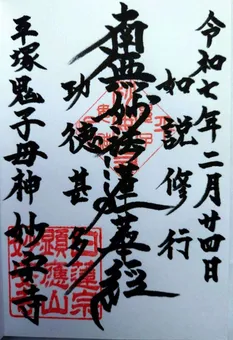 令和七年二月廿四日
如説修行
南無妙法蓮華経
功徳甚多
平塚鬼子母神 妙安寺
日蓮宗
願應山